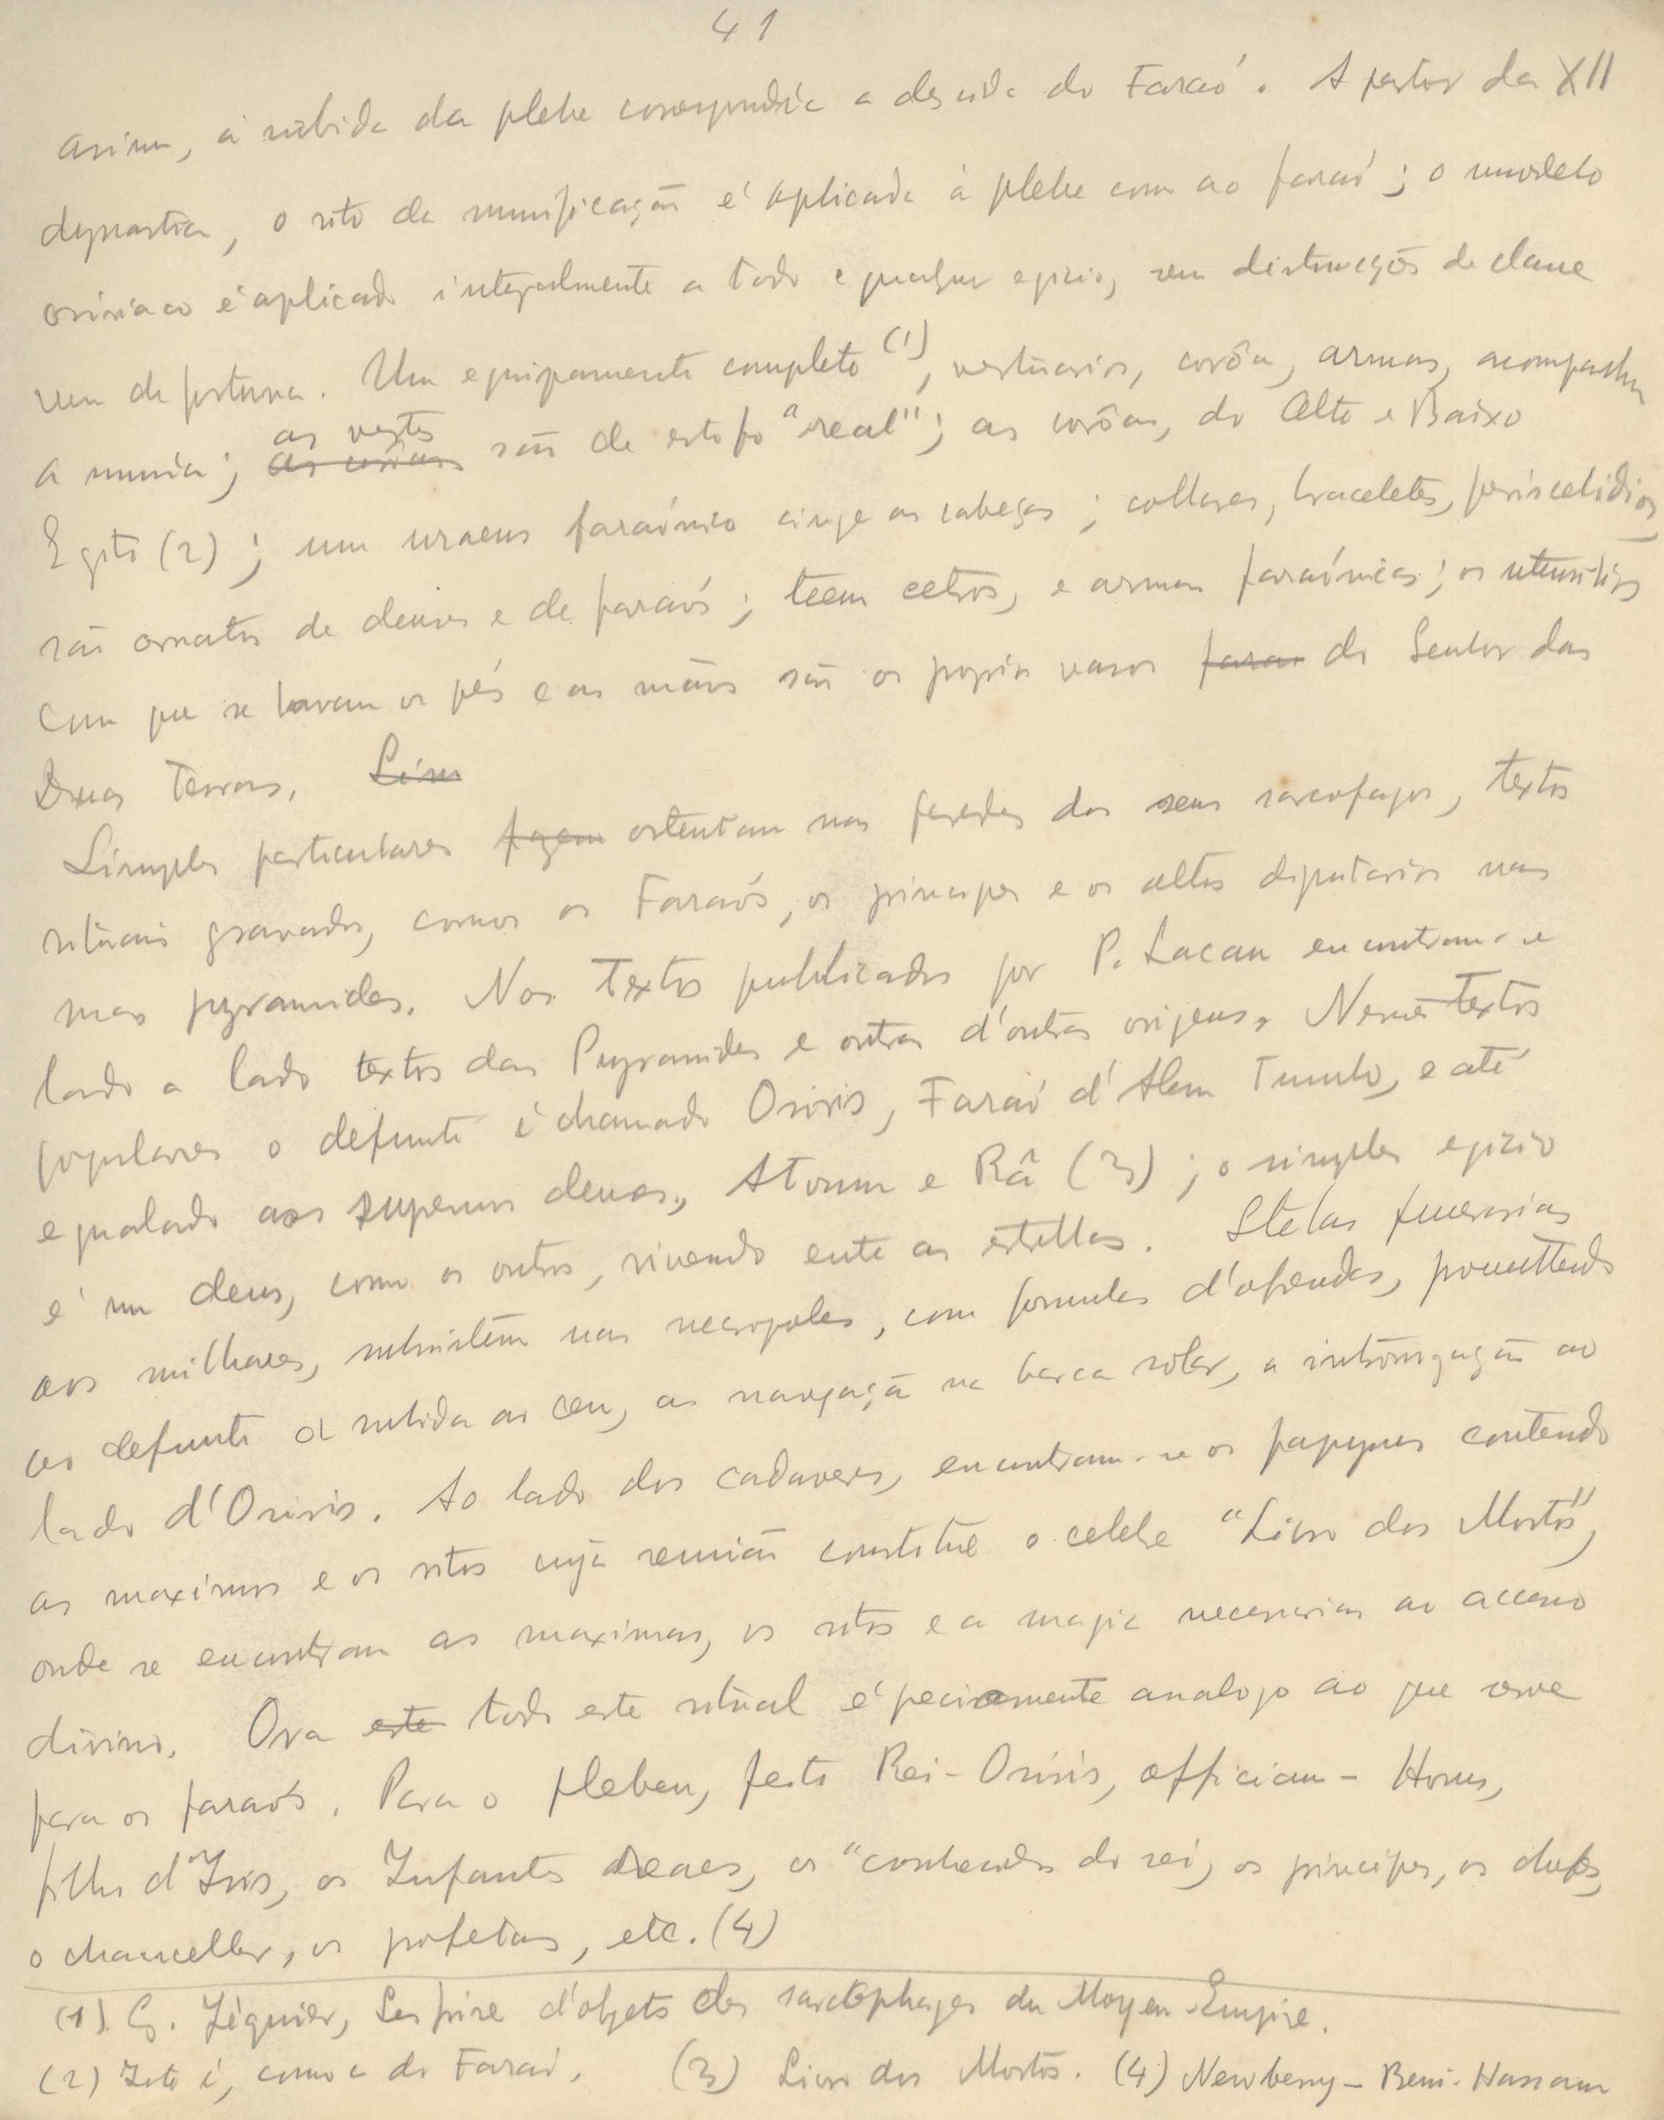 41
assim, á subida da plebe correspondia a descida do Faraó. A partir da XII
dynastia, o rito da mumificação é applicado á plebe como ao faraó; o modelo
osiriaco é aplicado integralmente a todo e qualquer egizio, sem distincções de classe
nem de fortuna. Um equipamento completo (1), vestuarios, corôa, armas, acompanha
a mumia; as vestes são de estofo "real"; as corôas, do Alto e Baixo
Egito (2); um uraeus faraónico cinge as cabeças; collares, braceletes, periscelidios,
são ornatos de deuses e de faraós; teem cetros, e armas faraónicas; os utensilios
com que se lavam os pés e as mãos são os proprios vasos do Senhor das
Duas Terras.
Simples particulares ostentam nas paredes dos seus sarcofagos, textos
rituais gravados, como os Faraós, os principes e os altos dignitarios nas
suas pyramides. Nos textos publicados por P. Lacau encontram-se
lado a lado textos das Pyramides e outros d'outras origens. Nesses textos
populares o defunto é chamado Osiris, Faraó d'Alem Tumulo, e até
egualado aos supremos deuses, Atoum e Râ (3); o simples egizio
é um deus, como os outros, vivendo entre as estrellas. Stelas funerarias
aos milhares, subsistem nas necropoles, com formulas d'ofrendas, promettendo
ao defunto a subida ao ceu, a navegação na barca solar, a introngação ao
lado d'Osiris. Ao lado dos cadaveres, encontram-se os papyrus contendo
as maximas e os ritos cuja reunião constitue o celebre "Livro dos Mortos",
onde se encontram as maximas, os ritos e a magia necessarias ao accesso
divino. Ora todo este ritual é precisamente analogo ao que serve
para os faraós. Para o plebeu, feito Rei-Osiris, officiam - Horus,
filho d'Isis, os Infantes Reaes, os "conhecidos do rei, os principes, os chefes,
o chanceller, os profetas, etc. (4)
(1) G. Jéquier, Les frise d'objets des sarcophages du Moyen-Empire.
(2) Isto é, como a do Faraó. (3) Livro dos Mortos. (4) Newberry - Beni-Hassam